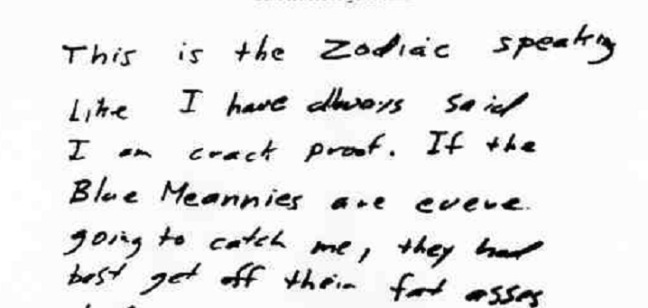 This is the Zodiac speaking
Like I have always said
I am crack proof. If the
Blue Meannies are evere
going to catch me, they had
best get off their fat asses